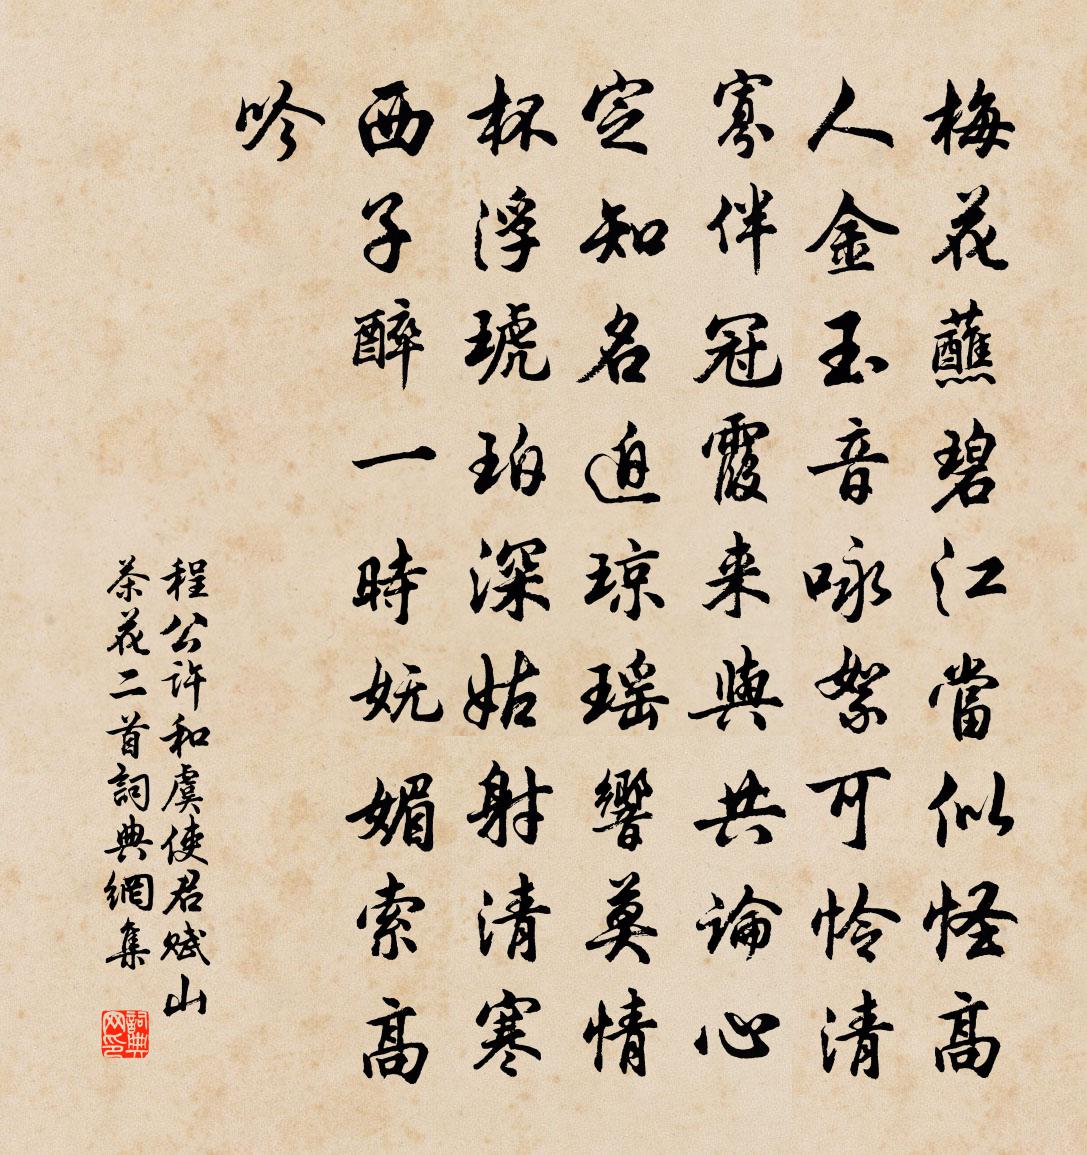 梅花蘸碧江當似怪高
人金玉音咏絮可怜清
寡伴冠霞来與共論心
定知名迫琼瑶響莫情
杯浮琥珀深姑射清寒
西子醉一時妩媚索高
吟
程公许和虞使君赋山
茶花二首詞典網集
詞典网印